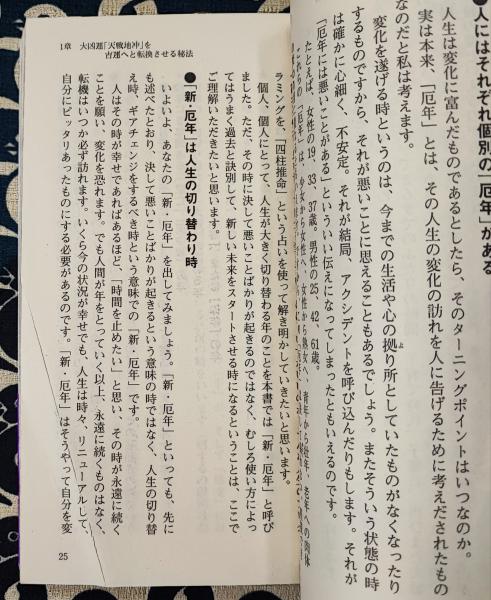 ●人にはそれぞれ個別の「厄年」がある
人生は変化に富んだものであるとしたら、そのターニングポイントはいつなのか。
実は本来、「厄年」とは、その人生の変化の訪れを人に告げるために考えだされたもの
なのだと私は考えます。
変化を遂げる時というのは、今までの生活や心の拠り所としていたものがなくなったり
するものですから、それが悪いことに思えることもあるでしょう。またそういう状態の時
は確かに心細く、不安定。それが結局、アクシデントを呼び込んだりもします。それが
「厄年には悪いことがある」といういい伝えになってしまったともいえるのです。
たとえば、女性の19、33、37歳。男性の25、42、61歳。
これらの「厄年」は、少女から女性へ、女性から熟女へ、青年から壮年、老年への肉体
ラミングを、「四柱推命」という占いを使って解き明かしていきたいと思います。
個人、個人にとって、人生が大きく切り替わる年のことを本書では「新・厄年」と呼び
ました。ただ、その時に決して悪いことばかりが起きるのではなく、むしろ使い方によっ
てはうまく過去と訣別して、新しい未来をスタートさせる時になるということは、ここで
ご理解いただきたいと思います。
●「新・厄年」は人生の切り替わり時
いよいよ、あなたの「新・厄年」を出してみましょう。「新・厄年」といっても、先に
も述べたとおり、決して悪いことばかりが起きるという意味の時ではなく、人生の切り替
え時、ギアチェンジをするべき時という意味での「新・厄年」です。
人はその時が幸せであればあるほど、「時間を止めたい」と思い、その時が永遠に続く
ことを願い、変化を恐れます。でも人間が年をとっていく以上、永遠に続くものはなく、
転機はいつか必ず訪れます。いくら今の状況が幸せでも、人生は時々、リニューアルして、
自分にピッタリあったものにする必要があるのです。「新・厄年」はそうやって自分を変
1章 大凶運「天戦地冲」を
吉運へと転換させる秘法
25